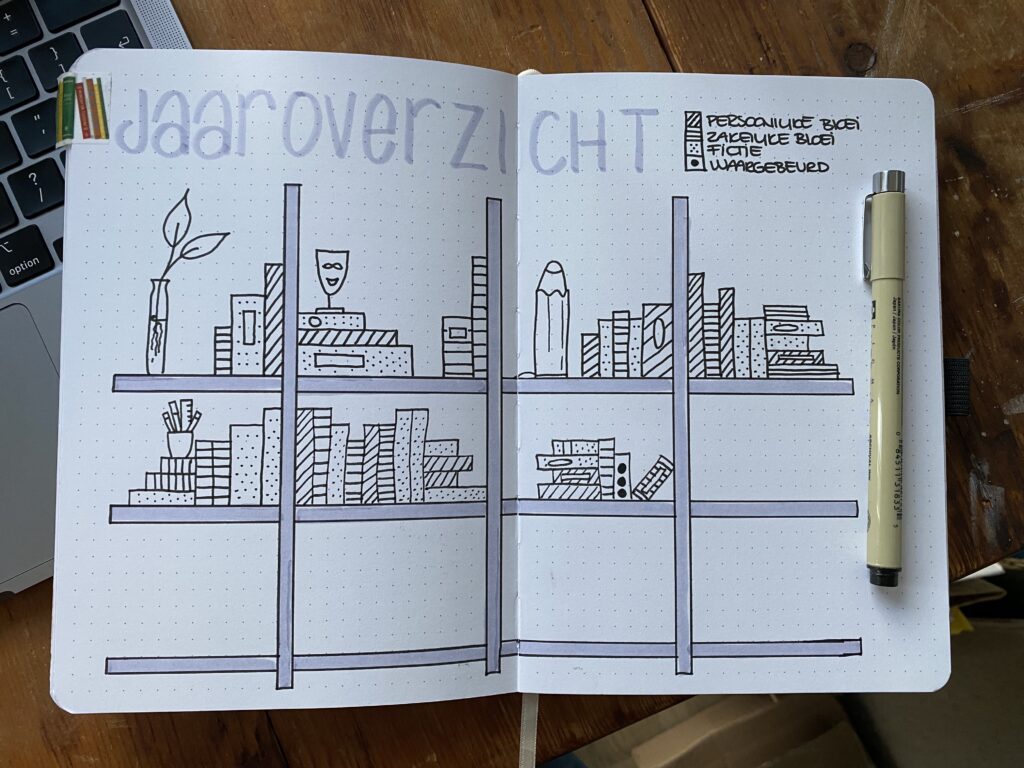 jaaroverzicht
PERSOONLIJKE BLOEI
ZAKELIJKE BLOEI
FICTIE
WAARGEBEURD
option